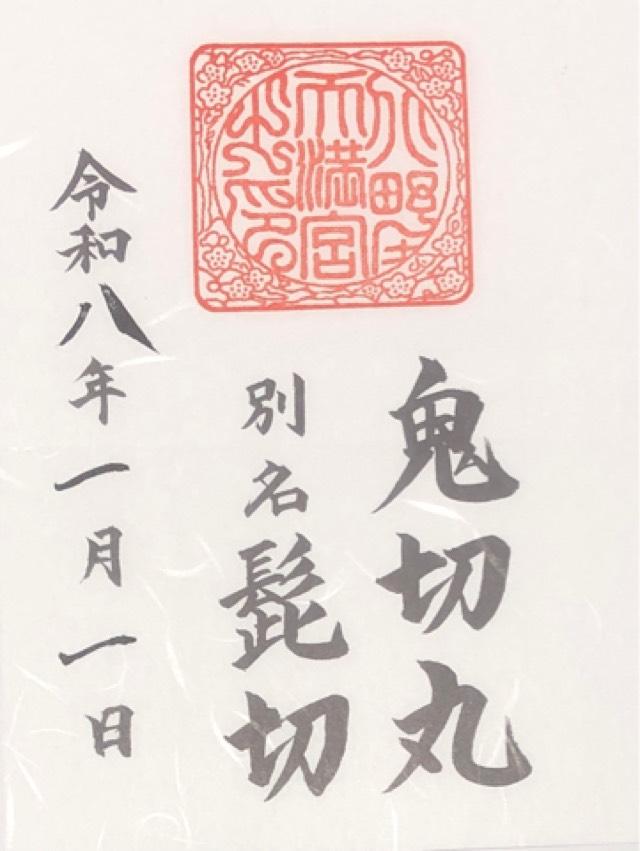 北野
天満宮
之印
鬼切丸
別名髭切
令和八年一月一日